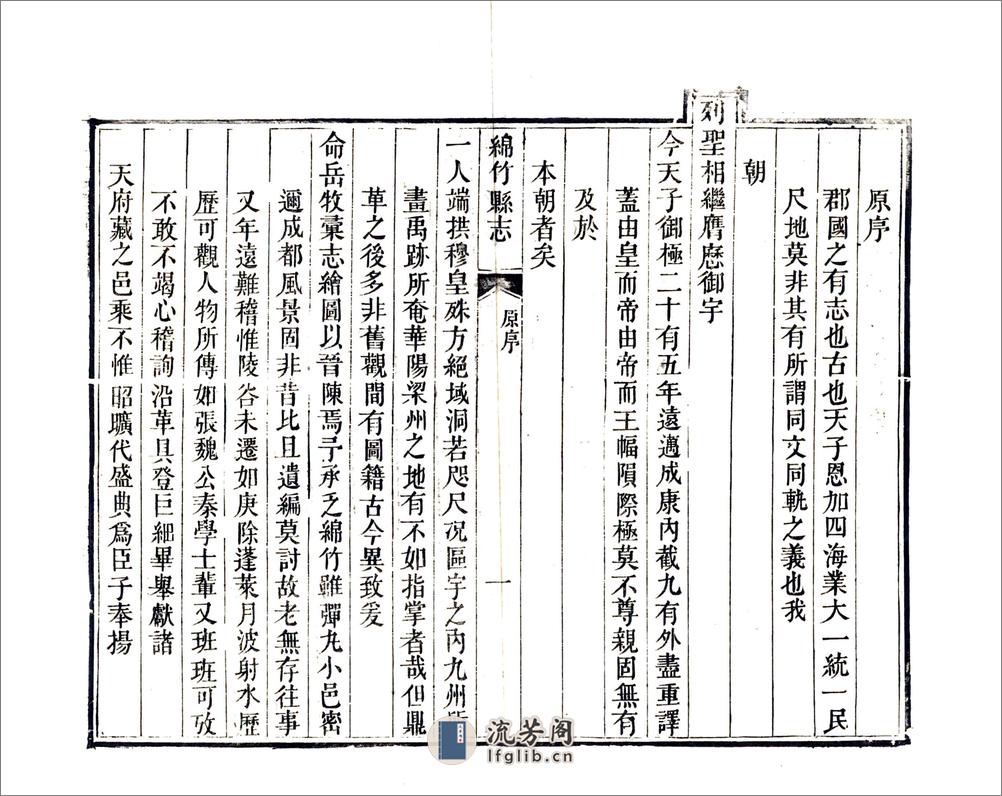 原序
郡國之有志也古也天子恩加四海業大一統一民
尺地莫非其有所謂同文同軌之義也我
朝
列聖相繼膺曆御宇
今天子御極二十有五年遠邁成康內截九有外盡重譯
蓋由皇而帝由帝而王幅隕際極莫不尊親固無有
及於
本朝者矣
綿竹縣志
原序
一
一人端拱穆皇殊方絕域洞若咫尺况區宇之內九州所
畫禹跡所奄華陽梁州之地有不如指掌者哉但鼎
革之後多非舊觀間有圖籍古今異致爰
命岳牧彙志繪圖以晉陳焉予承乏綿竹雖彈丸小邑密
邇成都風景固非昔比且遺編莫討故老無存往事
又年遠難稽惟陵谷未遷如庚除蓬萊月波射水歷
歷可觀人物所傳如張魏公秦學士輩又班班可攷
不敢不竭心稽詢沿革具登巨細畢舉獻諸
天府藏之邑乘不惟昭曠代盛典爲臣子奉揚
流芳阁
lfglib.cn